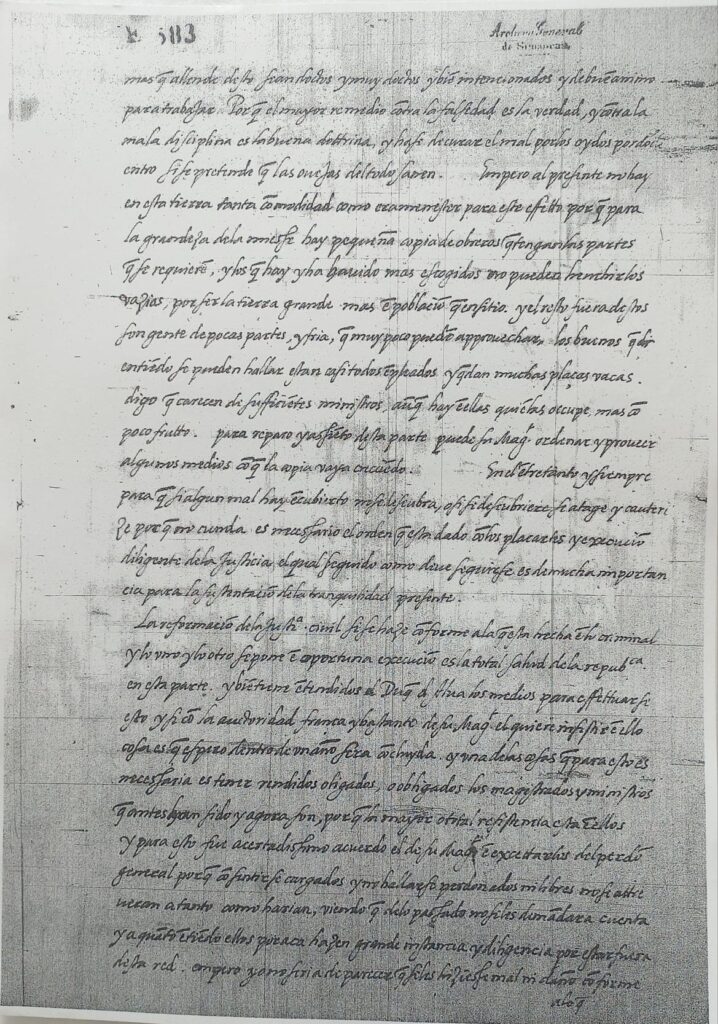 E 583
Archivo General
de Simancas
mas q̃ allende desto sean doctos y muy doctos y biẽ intencionados y de buẽ animo
para trabajar. Porq̃ el mayor remedio cõtra la falsedad es la verdad, y cõtra la
mala disciplina es la buena dottrina, y hase de curar el mal por los oydos por do
entro si se pretende q̃ las ovejas del todo sanen. Empero al presente no hay
en esta tierra tanta cõmodidad como era menester para este effetto por q̃ para
la grandeza de la miesse hay pequeña copia de obreros q̃ tengan las partes
q̃ se requierẽ, y los q̃ hay y ha havido mas escogidos no pueden henchir los
vazias, por ser la tierra grande mas ẽ poblaciõ q̃ en sitio. y el resto fuera destos
son gente de pocas partes, y fria, q̃ muy poco puedẽ approvechar. los buenos q̃
entiẽdo se pueden hallar estan casi todos ẽpleados y q̃dan muchas plaças vacas.
digo q̃ carecen de sufficiẽtes ministros, aũq̃ hay ẽ ellas quiẽ las occupe, mas cõ
poco frutto. para reparo y assiẽto desta parte puede su Mag.ᵈ ordenar y proveer
algunos medios cõ q̃ la copia vaya creciẽdo. En el ẽtretãto y siempre
para q̃ si algun mal hay ẽcubierto no se descubra, o si se descubriere se ataje y cauteri
ze por q̃ no cunda es necessario el orden q̃ esta dado cõ los placartes y execuciõ
diligente de la Justicia, el qual seguido como deve seguirse es de mucha importan
cia para la sustentaciõ de la tranquilidad presente.
La reformaciõ de la Just.ᵃ civil si se haze cõforme a la q̃ esta hecha ẽ lo criminal
y lo uno y lo otro se pone ẽ oportuna execuciõ es la total salud de la repub.ᶜᵃ
en esta parte. y biẽ tiene ẽtendidos el Duq̃ d̃ Alva los medios para effettuarse
esto y si cõ la auctoridad franca y bastante de su Mag.ᵈ el quiere insistir ẽ ello
cosa es q̃ espero dentro de un año sera cõcluyda. y una de las cosas q̃ para esto es
necessaria es tener rendidos obligados, o obligados los magistrados y ministros
q̃ antes han sido y agora son, por q̃ la mayor o total resistencia esta ẽ ellos
y para esto fue acertadissimo acuerdo el de su Mag.ᵈ ẽ excettarlos del perdõ
general porq̃ cõ sentirse cargados y no hallarse perdonados ni libres no se attre
veran a tanto como harian, viendo q̃ de lo passado no se les demãdara cuenta
y a quãto ẽtiẽdo ellos por aca hazen grande instancia y diligencia por estar fuera
desta red. empero yo no seria de parecer q̃ se les hiziesse mal ni daño cõforme
a lo q̃